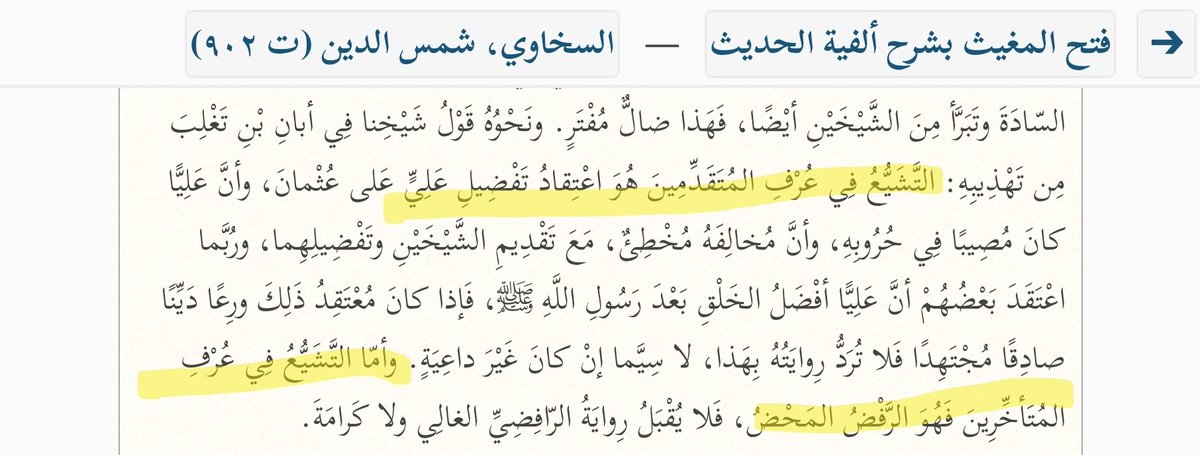 فتح المغيث بشرح ألفية الحديث — السخاوي، شمس الدين (ت ٩٠٢)
السّادَةَ وتَبَرَّأ مِنَ الشَّيْخَيْنِ أيْضًا، فَهَذا ضالٌّ مُفْتَرٍ. ونَحْوُهُ قَوْلُ شَيْخِنا فِي أبانِ بْنِ تَغْلِبَ
مِن تَهْذِيبِهِ: التَّشَيُّعُ فِي عُرْفِ المُتَقَدِّمِينَ هُوَ اعْتِقادُ تَفْضِيلِ عَلِيٍّ عَلى عُثْمانَ، وأنَّ عَلِيًّا
كانَ مُصِيبًا فِي حُرُوبِهِ، وأنَّ مُخالِفَهُ مُخْطِئٌ، مَعَ تَقْدِيمِ الشَّيْخَيْنِ وتَفْضِيلِهِما، ورُبَّما
اعْتَقَدَ بَعْضُهُمْ أنَّ عَلِيًّا أفْضَلُ الخَلْقِ بَعْدَ رَسُولِ اللَّهِ ﷺ، فَإذا كانَ مُعْتَقِدُ ذَلِكَ ورِعًا دَيِّنًا
صادِقًا مُجْتَهِدًا فَلا تُرَدُّ رِوايَتُهُ بِهَذا، لا سِيَّما إنْ كانَ غَيْرَ داعِيَةٍ. وأمّا التَّشَيُّعُ فِي عُرْفِ
المُتَأخِّرِينَ فَهُوَ الرَّفْضُ المَحْضُ، فَلا يُقْبَلُ رِوايَةُ الرّافِضِيِّ الغالِي ولا كَرامَةَ.